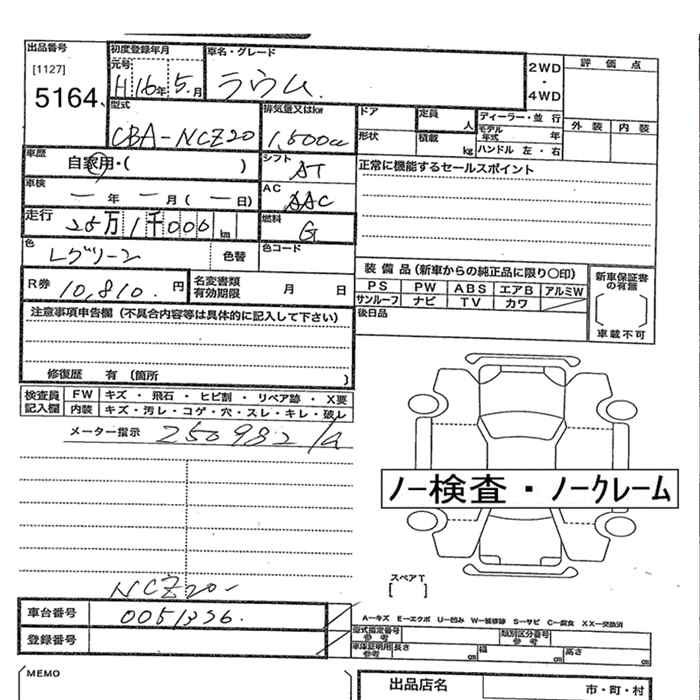 出品番号 初度登録年月 車名・グレード 2WD・4WD 評価点
[1127] 元号 H 16年 5.月 ラウム.
5164 型式 排気量又はkw ドア 定員 人 ディーラー・並行 外装 内装
CBA-NCZ20 1,500cc 形状 積載 kg モデル年式 年
ハンドル 左・右
車歴 自家用・( ) シフト AT 正常に機能するセールスポイント
車検 ー年 ー月(ー日) AC AAC
走行 25万1千000km 燃料 G
色 Lグリーン 色替 色コード
装備品(新車からの純正品に限り〇印) 新車保証書の有無
R券 10,810.円 名変書類有効期限 月 日 PS PW ABS エアB アルミW
サンルーフ ナビ TV カワ
注意事項申告欄(不具合内容等は具体的に記入して下さい) 後日品 車載不可
修復歴 有(箇所 )
検査員記入欄 FW キズ・飛石・ヒビ割・リペア跡・X要
内装 キズ・汚レ・コゲ・穴・スレ・キレ・破レ
メーター指示 250982
ノー検査・ノークレーム
スペアT
[ ]
NCZ20-
車台番号 0051356. A-キズ E-エクボ U-凹み W-補修跡 S-サビ C-腐食 XX-交換済
登録番号 型式指定番号 参考 類別区分番号 参考
車庫証明用 参考 長さ cm 幅 cm 高さ cm
MEMO 出品店名 市・町・村